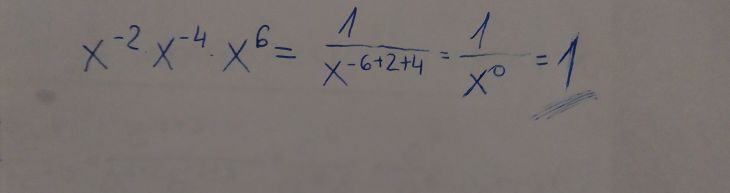 x⁻² · x⁻⁴ · x⁶ = 1/x⁻⁶⁺²⁺⁴ = 1/x⁰ = 1